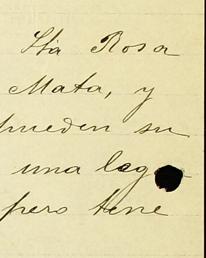 Sta Rosa
Mata, y
pueden su
una lag
pero tene